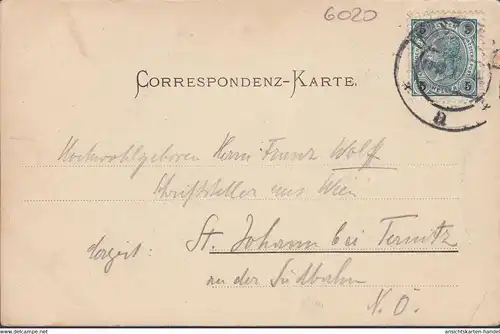 6020
CORRESPONDENZ-KARTE.
5 5
Hochwohlgeboren Herrn Franz Wolff
Schriftsteller aus Wien
derzeit: St. Johann bei Ternitz
an der Südbahn
N. Ö.
ansichtskarten-handel.com